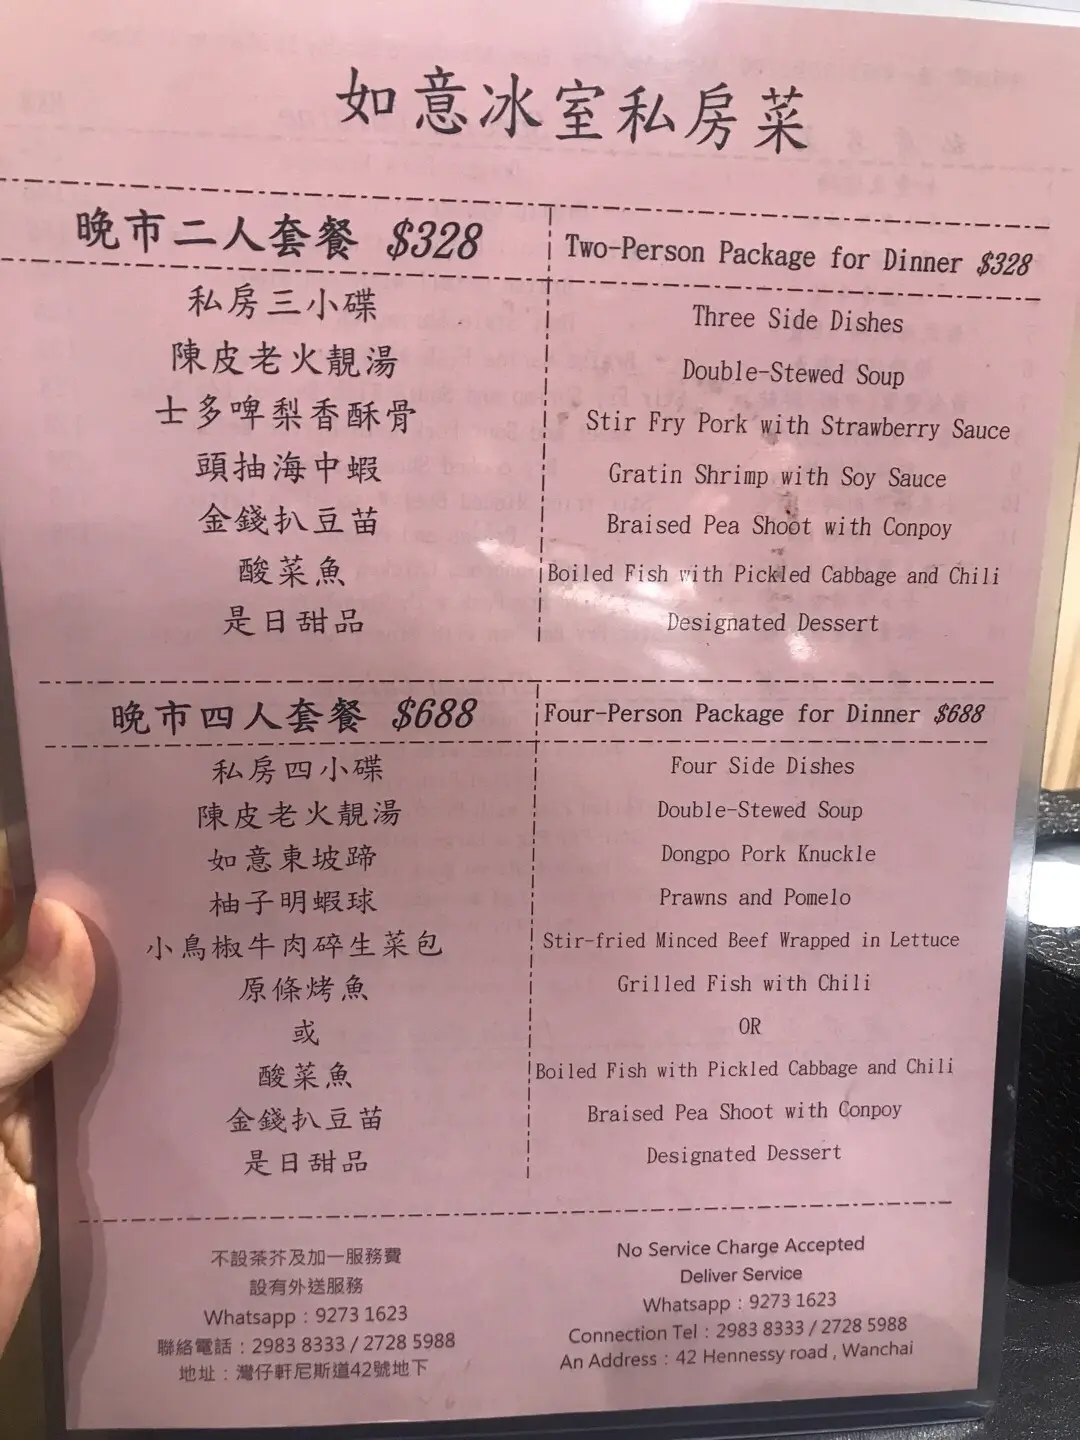 如意冰室私房菜
晚市二人套餐 $328
Two-Person Package for Dinner $328
私房三小碟
Three Side Dishes
陳皮老火靚湯
Double-Stewed Soup
士多啤梨香酥骨
Stir Fry Pork with Strawberry Sauce
頭抽海中蝦
Gratin Shrimp with Soy Sauce
金錢扒豆苗
Braised Pea Shoot with Conpoy
酸菜魚
Boiled Fish with Pickled Cabbage and Chili
是日甜品
Designated Dessert
晚市四人套餐 $688
Four-Person Package for Dinner $688
私房四小碟
Four Side Dishes
陳皮老火靚湯
Double-Stewed Soup
如意東坡蹄
Dongpo Pork Knuckle
柚子明蝦球
Prawns and Pomelo
小鳥椒牛肉碎生菜包
Stir-fried Minced Beef Wrapped in Lettuce
原條烤魚
Grilled Fish with Chili
或
OR
酸菜魚
Boiled Fish with Pickled Cabbage and Chili
金錢扒豆苗
Braised Pea Shoot with Conpoy
是日甜品
Designated Dessert
不設茶芥及加一服務費
設有外送服務
Whatsapp : 9273 1623
聯絡電話 : 2983 8333 / 2728 5988
地址 : 灣仔軒尼斯道42號地下
No Service Charge Accepted
Deliver Service
Whatsapp : 9273 1623
Connection Tel : 2983 8333 / 2728 5988
An Address : 42 Hennessy road , Wanchai